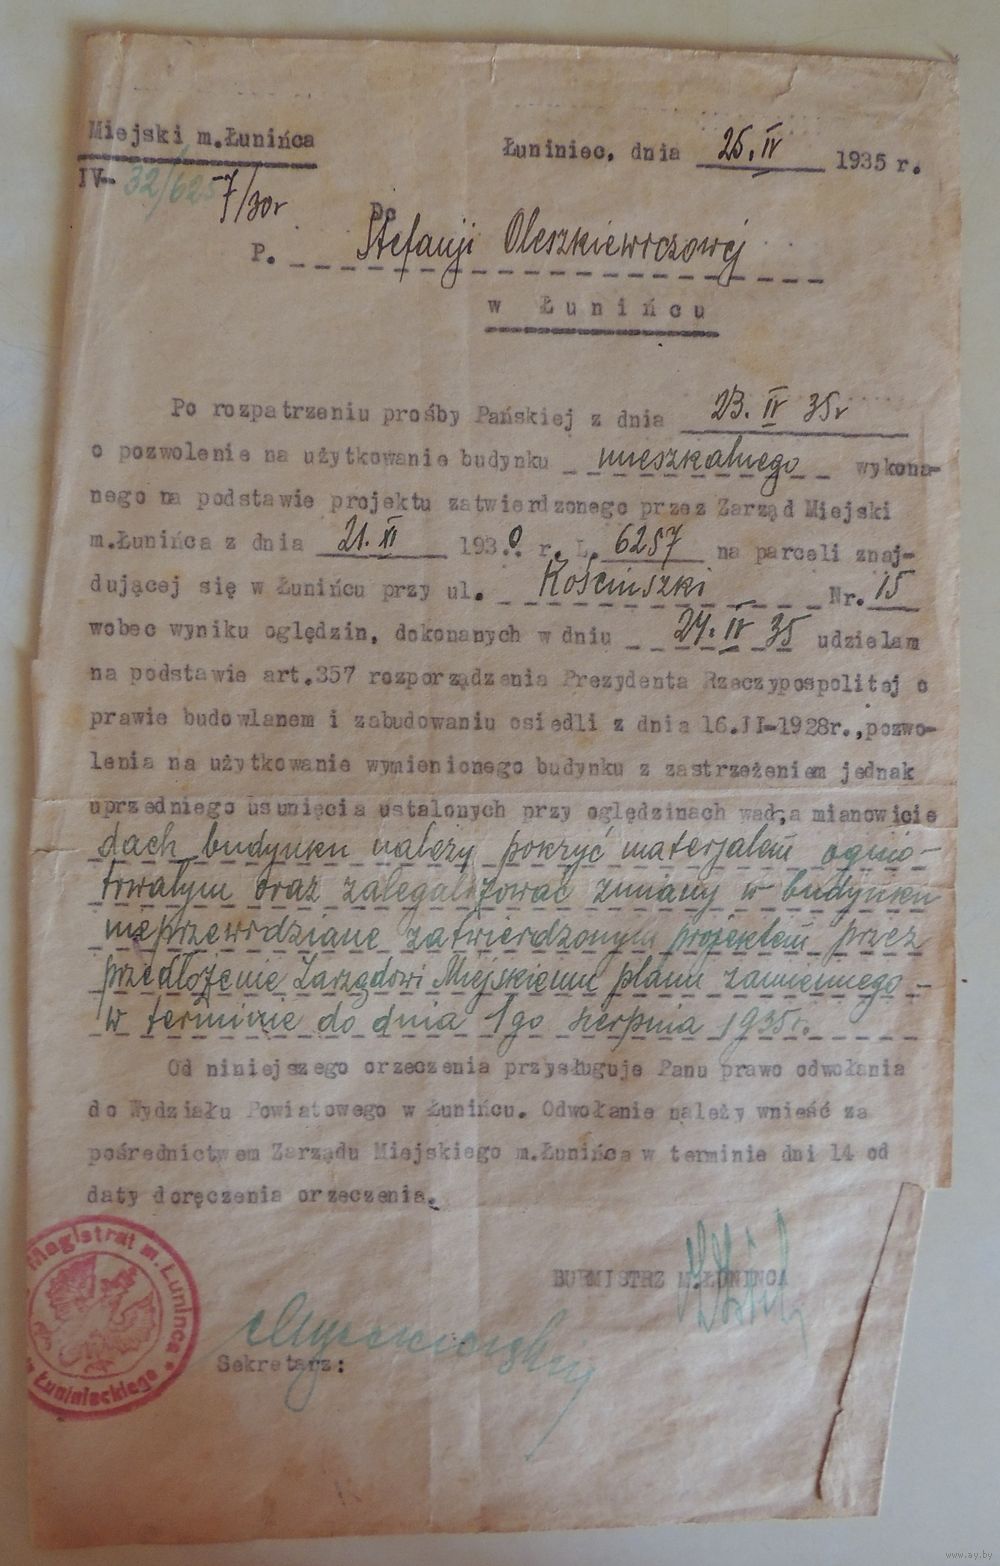 Miejski m.Łunińca
Łuniniec, dnia 25. IV 1935 r.
IV- 32/6257/30r
Do
P. Stefanji Oleszkiewiczowej
w Łunińcu
Po rozpatrzeniu prośby Pańskiej z dnia 23. IV 35r
o pozwolenie na użytkowanie budynku mieszkalnego wykona-
nego na podstawie projektu zatwierdzonego przez Zarząd Miejski
m.Łunińca z dnia 21. XI 1930. r. L. 6257 na parceli znaj-
dującej się w Łunińcu przy ul. Kościuszki Nr. 15
wobec wyniku oględzin, dokonanych w dniu 24. IV 35 udzielam
na podstawie art.357 rozporządzenia Prezydenta Rzeczypospolitej o
prawie budowlanem i zabudowaniu osiedli z dnia 16.II-1928r.,pozwo-
lenia na użytkowanie wymienionego budynku z zastrzeżeniem jednak
uprzedniego usunięcia ustalonych przy oględzinach wad,a mianowicie
dach budynku należy pokryć materjałem ognio-
trwałym oraz zalegalizować zmiany w budynku
nieprzewidziane zatwierdzonym projektem przez
przedłożenie Zarządowi Miejskiemu planu zamiennego -
w terminie do dnia 1go sierpnia 1935r.
Od niniejszego orzeczenia przysługuje Panu prawo odwołania
do Wydziału Powiatowego w Łunińcu. Odwołanie należy wnieść za
pośrednictwem Zarządu Miejskiego m.Łunińca w terminie dni 14 od
daty doręczenia orzeczenia.
Magistrat m. Łunińca
Łuninieckiego
BURMISTRZ M.ŁUNIŃCA
Sekretarz:
www.ay.by